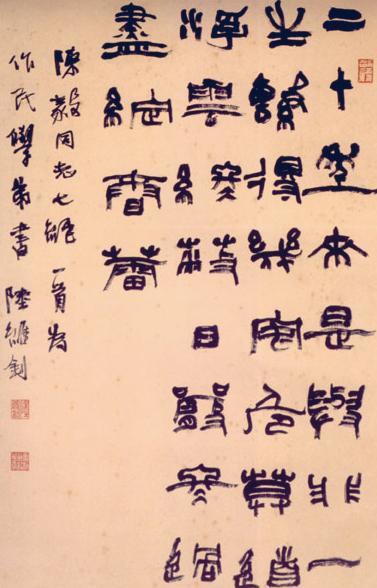 二十年來是與非一
生繫得幾安危莫道
浮雲終蔽日嚴冬過
盡綻春蕾
陳毅同志七絕一首為
作民學弟書 陸維釗